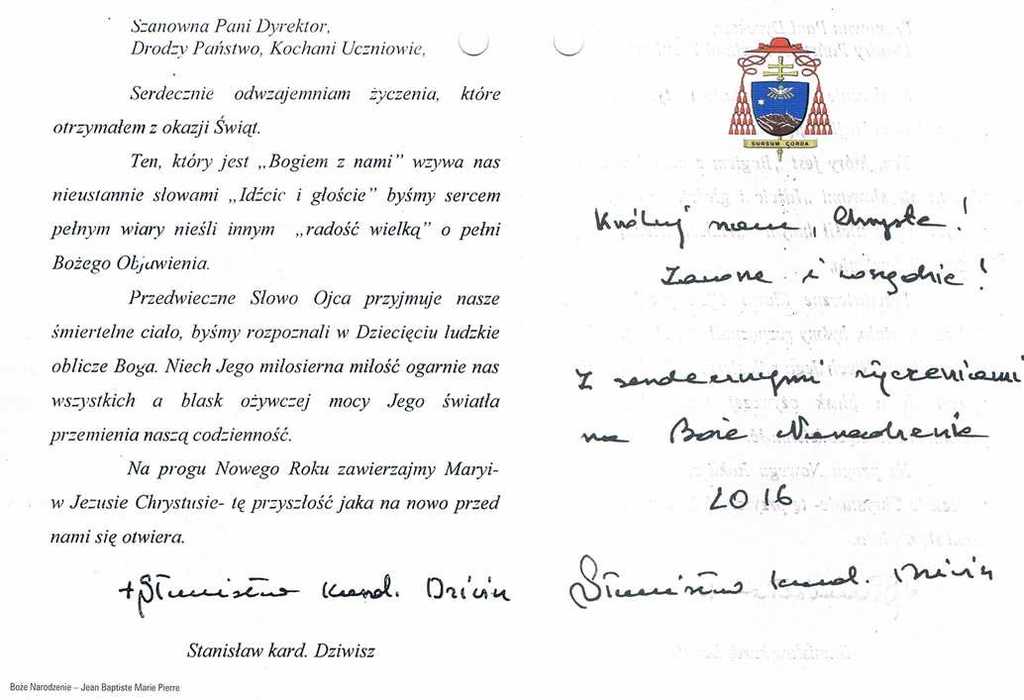 Szanowna Pani Dyrektor,
Drodzy Państwo, Kochani Uczniowie,
Serdecznie odwzajemniam życzenia, które
otrzymałem z okazji Świąt.
Ten, który jest „Bogiem z nami” wzywa nas
nieustannie słowami „Idźcie i głoście” byśmy sercem
pełnym wiary nieśli innym „radość wielką” o pełni
Bożego Objawienia.
Przedwieczne Słowo Ojca przyjmuje nasze
śmiertelne ciało, byśmy rozpoznali w Dziecięciu ludzkie
oblicze Boga. Niech Jego miłosierna miłość ogarnie nas
wszystkich a blask ożywczej mocy Jego światła
przemienia naszą codzienność.
Na progu Nowego Roku zawierzajmy Maryi-
w Jezusie Chrystusie- tę przyszłość jaka na nowo przed
nami się otwiera.
+ Stanisław kard. Dziwisz
Stanisław kard. Dziwisz
Boże Narodzenie – Jean Baptiste Marie Pierre
SURSUM CORDA
Króluj nam, Chryste!
Zawsze i wszędzie!
Z serdecznymi życzeniami
na Boże Narodzenie
2016
Stanisław kard. Dziwisz